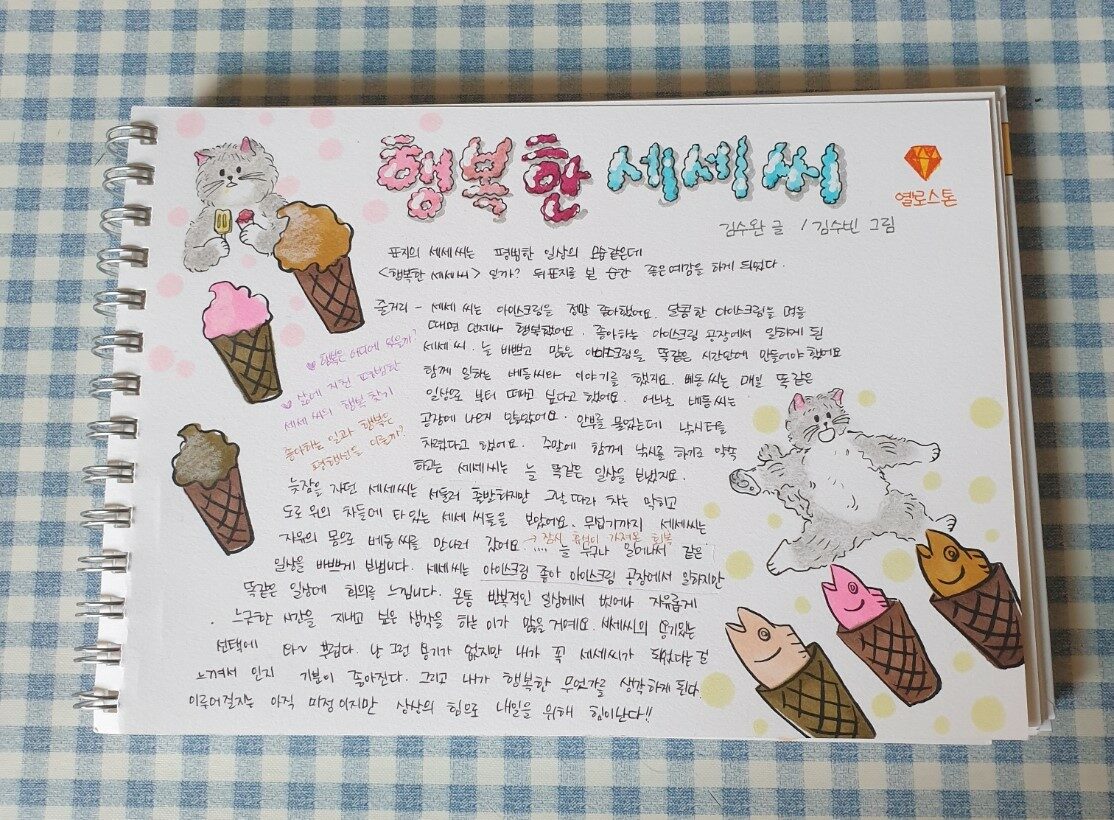 행복한 세세 씨
옐로스톤
김수완 글 / 김수빈 그림
표지의 세세씨는 평범한 일상의 모습같은데
<행복한 세세씨> 일까? 뒤표지를 본 순간 좋은예감을 하게 되었다.
줄거리 - 세세 씨는 아이스크림을 정말 좋아했어요. 달콤한 아이스크림을 먹을
때면 언제나 행복했어요. 좋아하는 아이스크림 공장에서 일하게 된
세세 씨. 늘 바쁘고 많은 아이스크림을 똑같은 시간안에 만들어야 했어요
함께 일하는 베동씨와 이야기를 했지요. 베동 씨는 매일 똑 같은
일상으로 부터 떠나고 싶다고 했어요. 어느날 베동씨는
공장에 나오지 않았어요. 안부를 물었는데 낚시터를
차렸다고 했어요. 주말에 함께 낚시를 하기로 약속
하고는 세세씨는 늘 똑같은 일상을 보냈지요.
♥ 행복은 어디에 있을까?
♥ 삶에 지친 평범한
세세 씨의 행복 찾기
좋아하는 일과 행복은
평행선을 이룰까?
늦잠을 자던 세세씨는 서둘러 출발하지만 그날따라 차는 막히고
도로 위의 차들에 타 있는 세세 씨들을 보았어요. 무섭기까지 세세씨는
자유의 몸으로 베동 씨를 만나러 갔어요. .... 늘 누구나 일에써서 같은
→ 잠시 휴식이 가져온 회복
일상을 바쁘게 보냅니다. 세세씨는 아이스크림 좋아 아이스크림 공장에서 일하지만
똑같은 일상에 회의를 느낍니다. 온통 반복적인 일상에서 벗어나 자유롭게
느긋한 시간을 지내고 싶은 생각을 하는 이가 많을 거예요. 세세씨의 용기있는
선택에 와~ 부럽다. 난 그런 용기가 없지만 내가 꼭 세세씨가 되었다는 걸
느껴서 인지 기분이 좋아진다. 그리고 내가 행복한 무언가를 생각하게 된다.
이루어질지는 아직 미정이지만 상상의 힘으로 내일을 위해 힘이난다!!